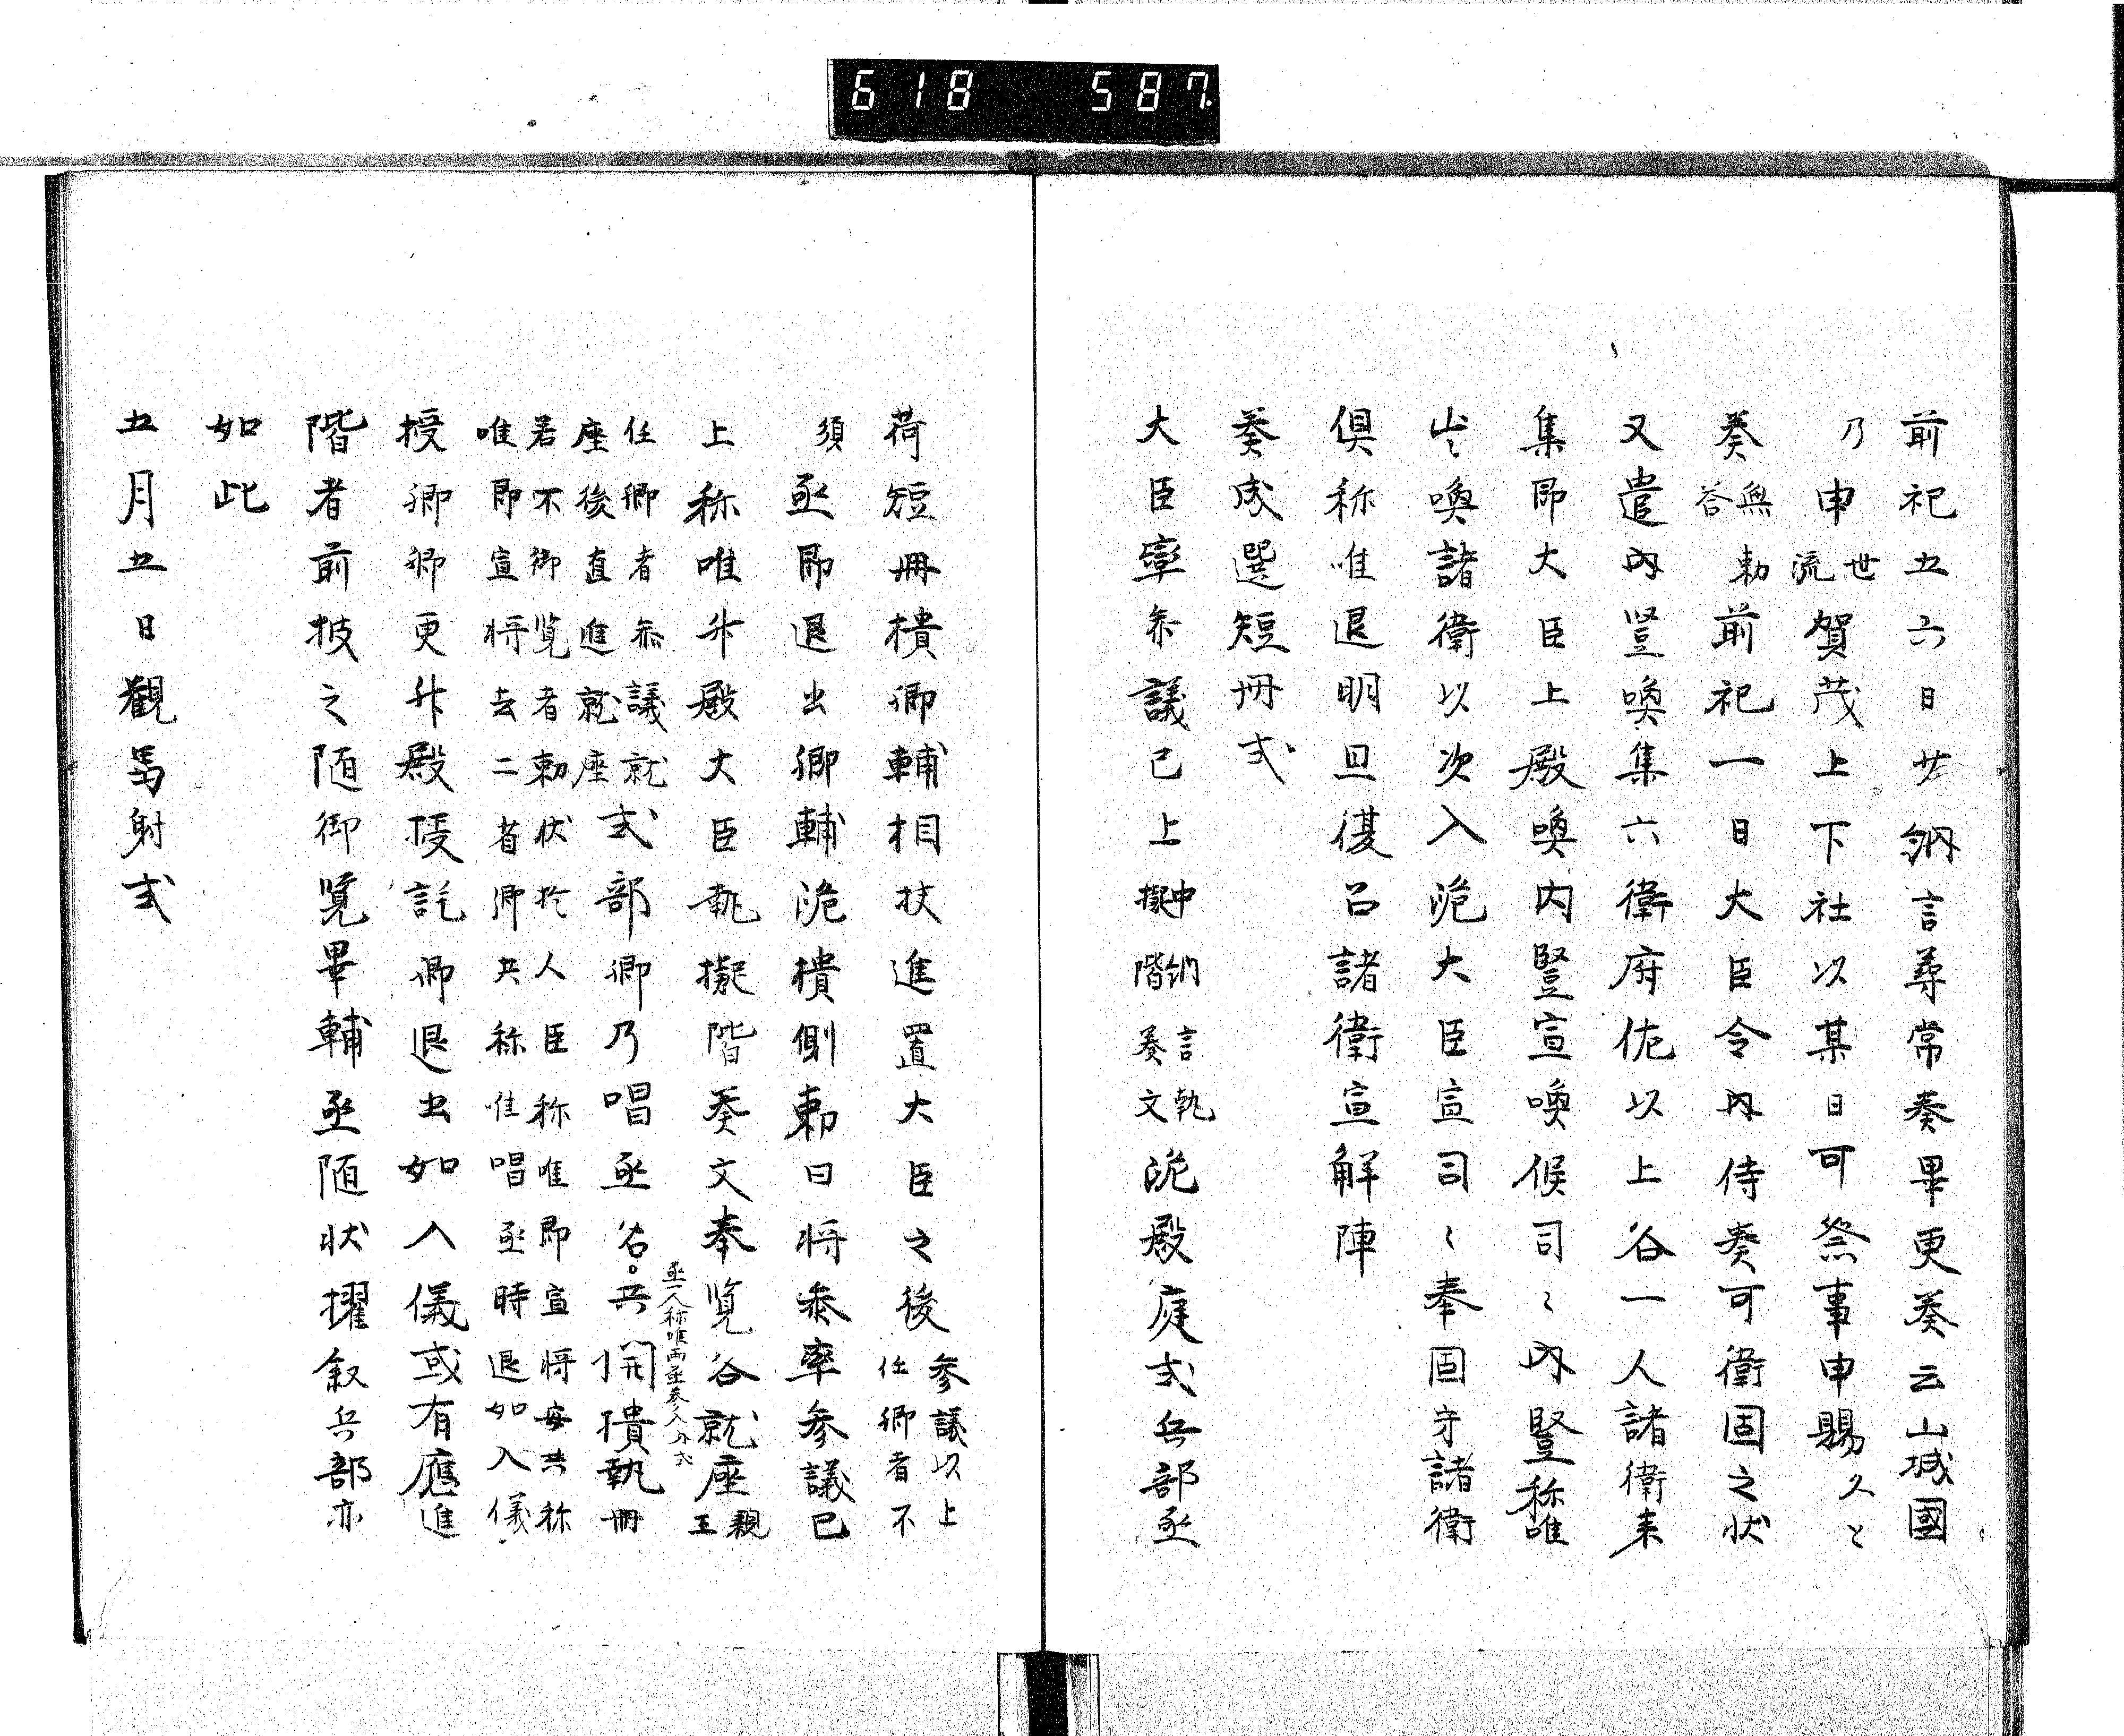 618 587
前祀五六日廿納言尋常奏畢更奏云山城國
乃申世流賀茂上下社以某日可祭事申賜久と
奏無勅答前祀一日大臣令内侍奏可衛固之状
又遣内豎喚集六衛府佐以上各一人諸衛来
集即大臣上殿喚内豎宣喚候司〻内豎称唯
出喚諸衛以次入跪大臣宣司〻奉固守諸衛
倶称唯退明旦復召諸衛宣解陣
奏成選短冊式
大臣率参議已上中納言執擬階奏文跪殿庭式兵部丞
荷短冊樻卿輔相扶進置大臣之後参議以上任卿者不
須丞即退出卿輔跪樻側勅曰将参率参議已
上称唯升殿大臣執擬階奏文奉覧各就座親王
任卿者亦議就座後直進就座式部卿乃唱丞名。共開樻執冊
丞一人称唯両丞参入介式
若不御覧者勅状於人臣称唯即宣将安共称
唯即宣将去二省卿共称唯唱丞時退如入儀
授卿卿更升殿授訖卿退出如入儀或有應進
階者前披之随御覧畢輔丞随状擢叙兵部亦
如此
五月五日觀馬射式